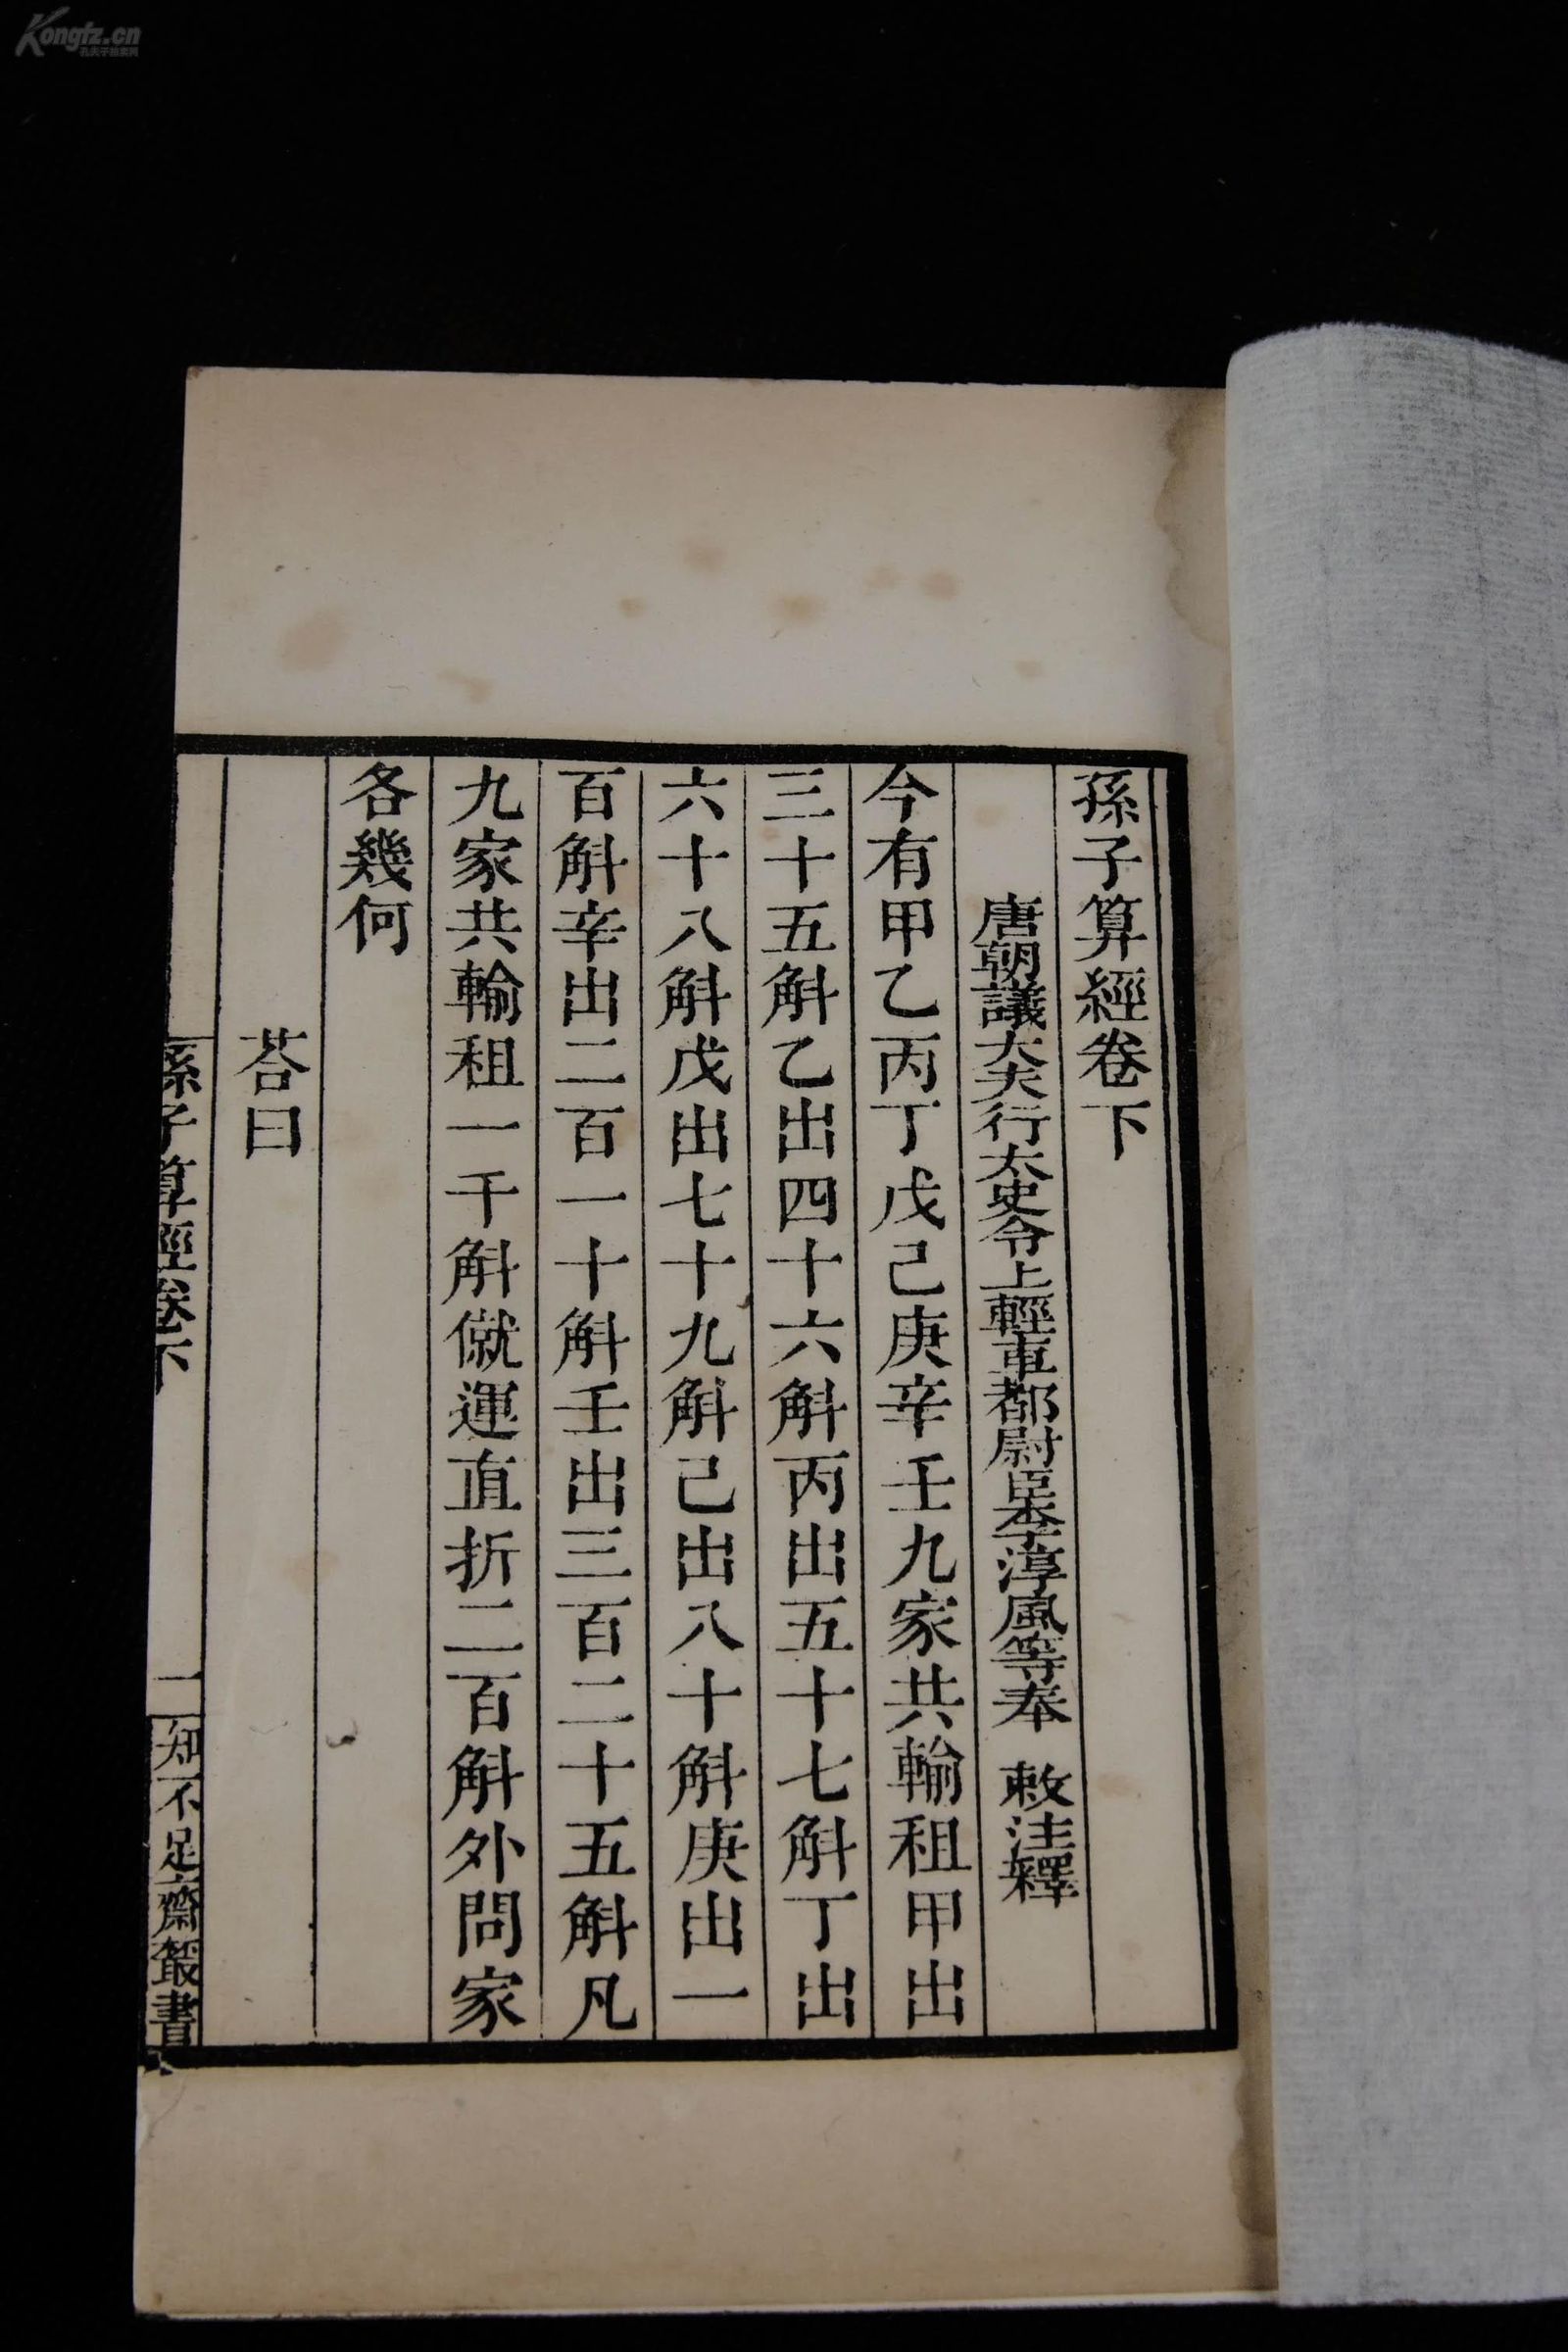 孫子算經卷下
唐朝議大夫行太史令上輕車都尉臣李淳風等奉 敕注釋
今有甲乙丙丁戊己庚辛壬九家共輸租甲出
三十五斛乙出四十六斛丙出五十七斛丁出
六十八斛戊出七十九斛己出八十斛庚出一
百斛辛出二百一十斛壬出三百二十五斛凡
九家共輸租一千斛僦運直折二百斛外問家
各幾何
荅曰
孫子算經卷下
一
知不足齋叢書
Kongfz.cn
孔夫子拍卖网